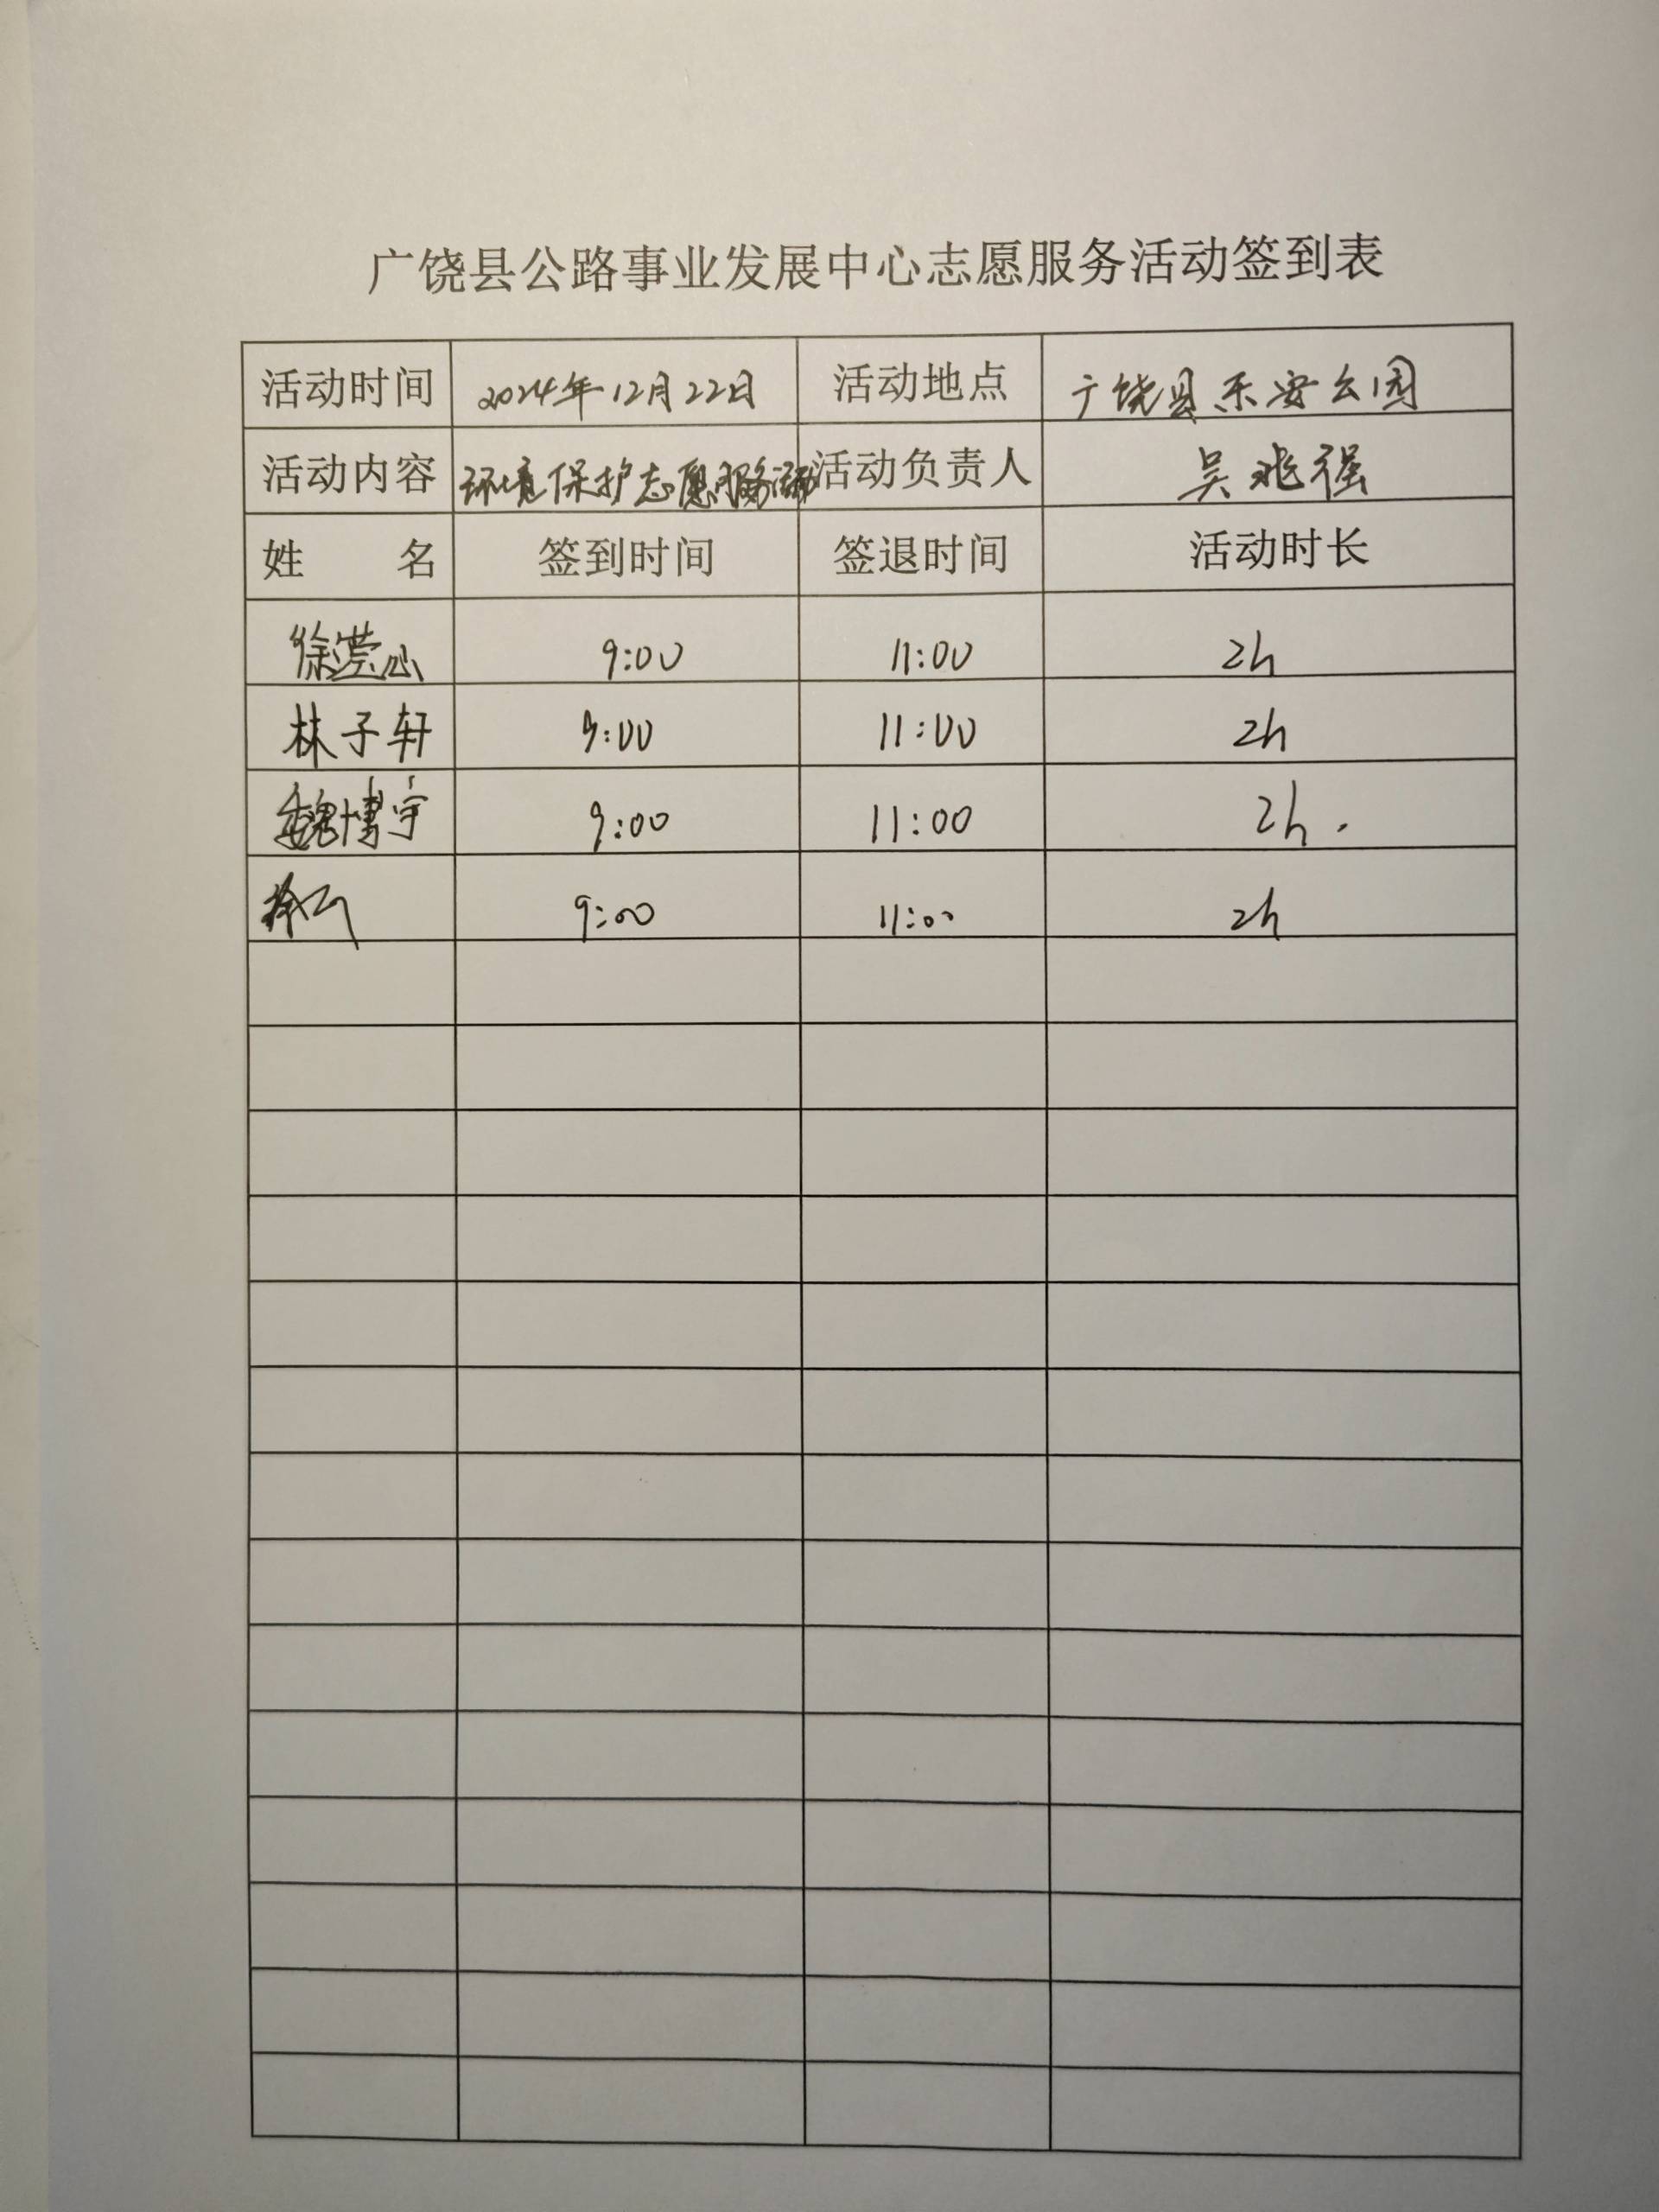 广饶县公路事业发展中心志愿服务活动签到表
活动时间 2024年12月22日 活动地点 广饶县乐安公园
活动内容 环境保护志愿服务活动 活动负责人 吴兆强
姓 名 签到时间 签退时间 活动时长
徐滢心 9:00 11:00 2h
林子轩 9:00 11:00 2h
魏博宇 9:00 11:00 2h.
徐 9:00 11:00 2h